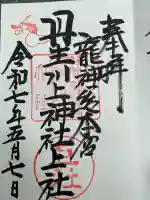 奉拝
龍神総本宮
丹生川上神社上社
令和七年五月七日